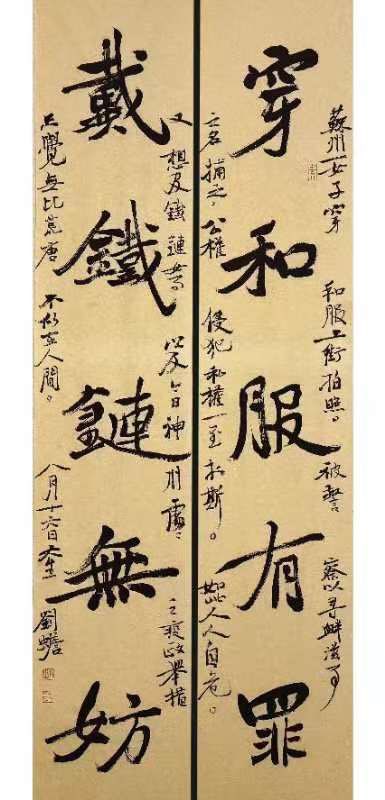 穿和服有罪
蘇州一女子穿和服上街拍照。被警察以尋衅滋事
之名捕之，公權侵犯私權一至於斯。如此人人自危。
戴鐵鏈無妨
又想及鐵鏈女，以及今日神州處處之疫政舉措
覺無比荒唐不似在人間。八月十六日 劉蟾